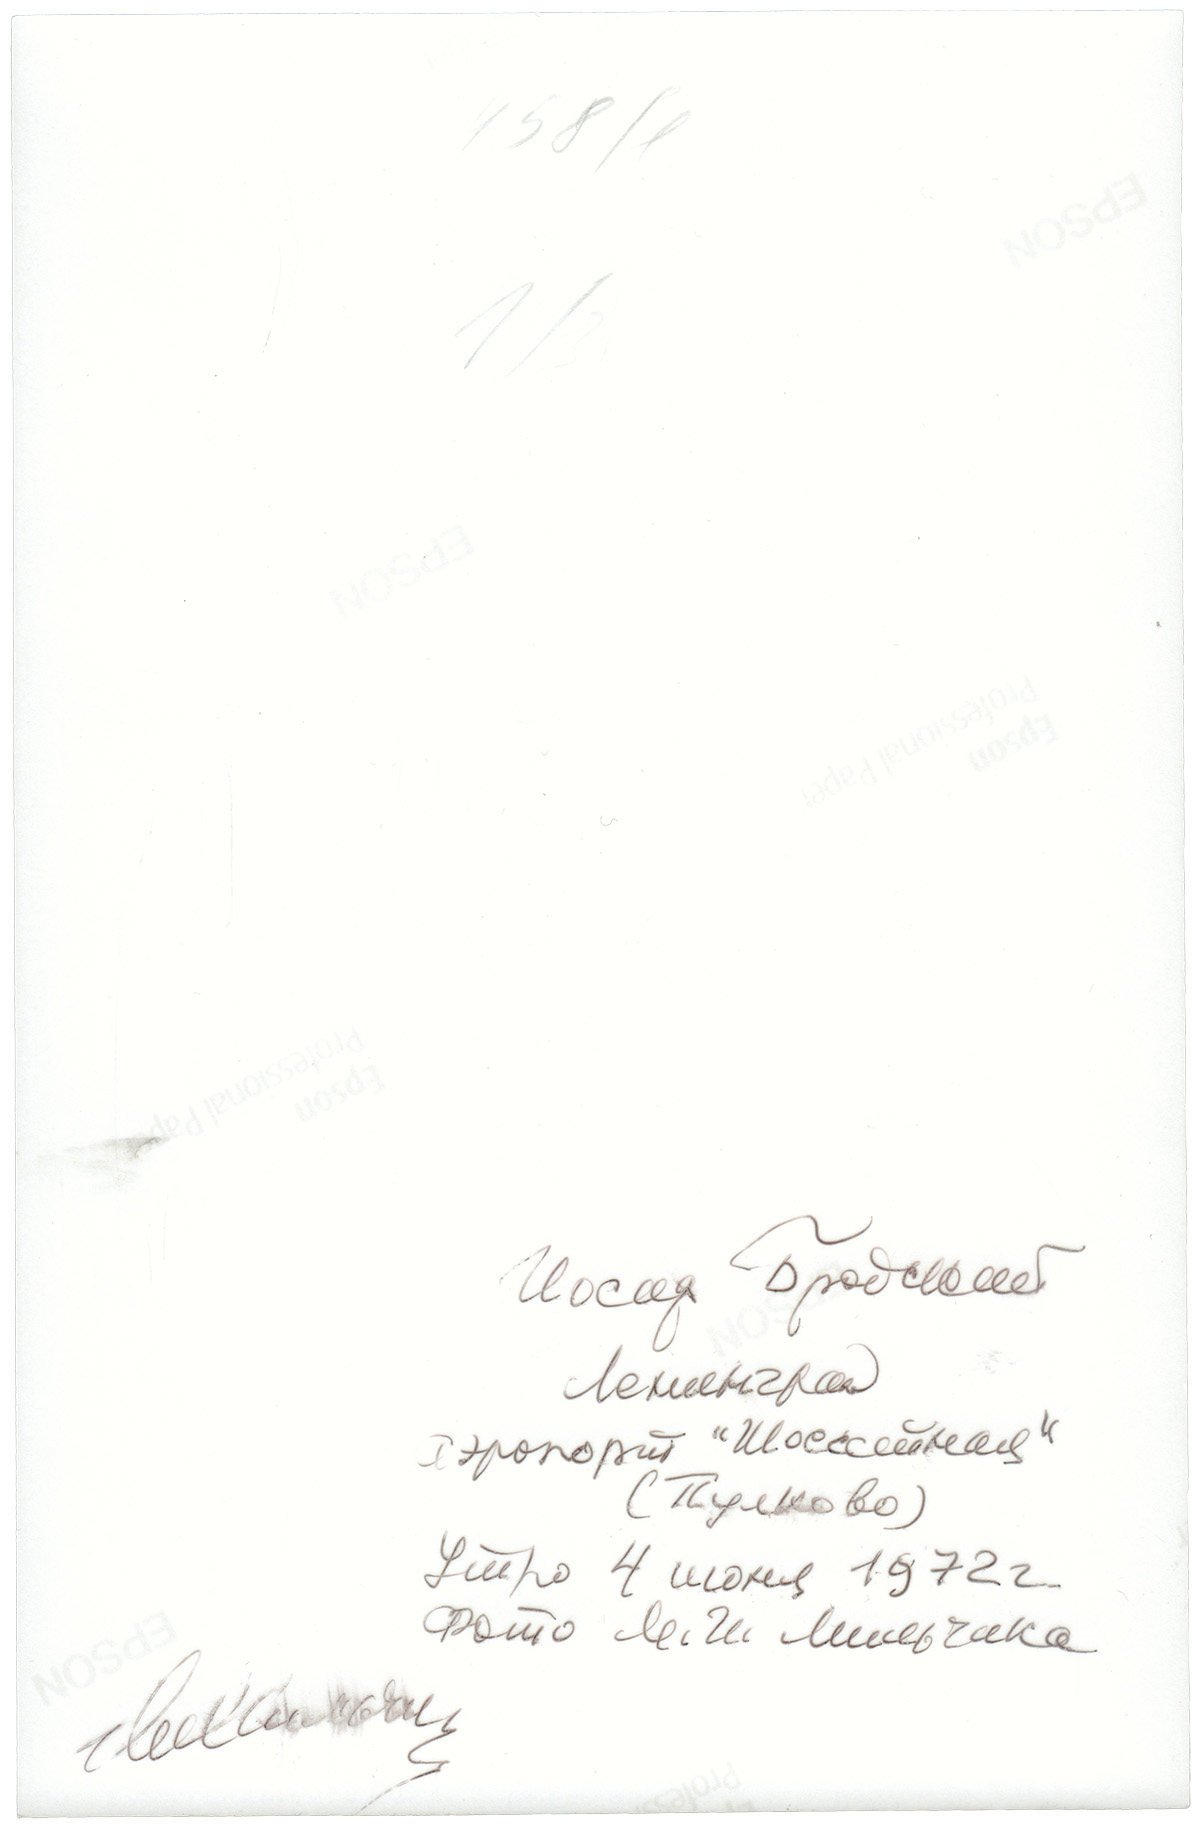 458/1
1/3
EPSON
EPSON
Epson
Professional Paper
Epson
Professional Paper
Иосиф Бродский
EPSON
Ленинград
Аэропорт "Шоссейная"
(Пулково)
Утро 4 июня 1972 г.
Фото М.И. Мильчика
EPSON